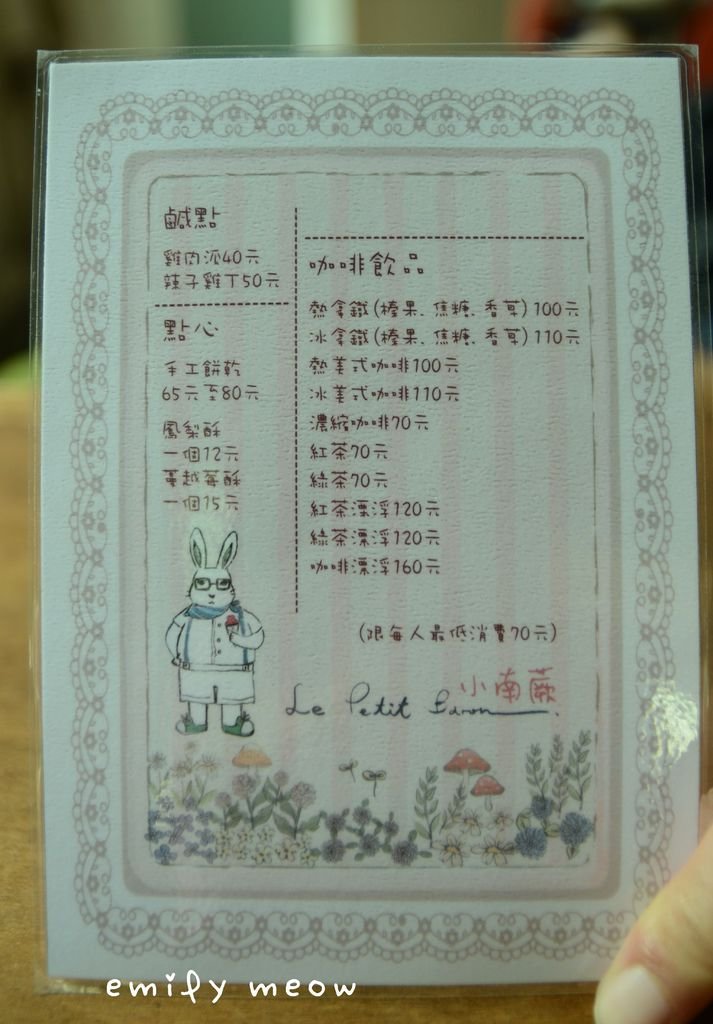 鹹點
雞肉派40元
辣子雞丁50元
點心
手工餅乾
65元至80元
鳳梨酥
一個12元
蔓越莓酥
一個15元
咖啡飲品
熱拿鐵(榛果、焦糖、香草)100元
冰拿鐵(榛果、焦糖、香草)110元
熱美式咖啡100元
冰美式咖啡110元
濃縮咖啡70元
紅茶70元
綠茶70元
紅茶漂浮120元
綠茶漂浮120元
咖啡漂浮160元
(限每人最低消費70元)
小南蕨
Le Petit Baron
emify meow